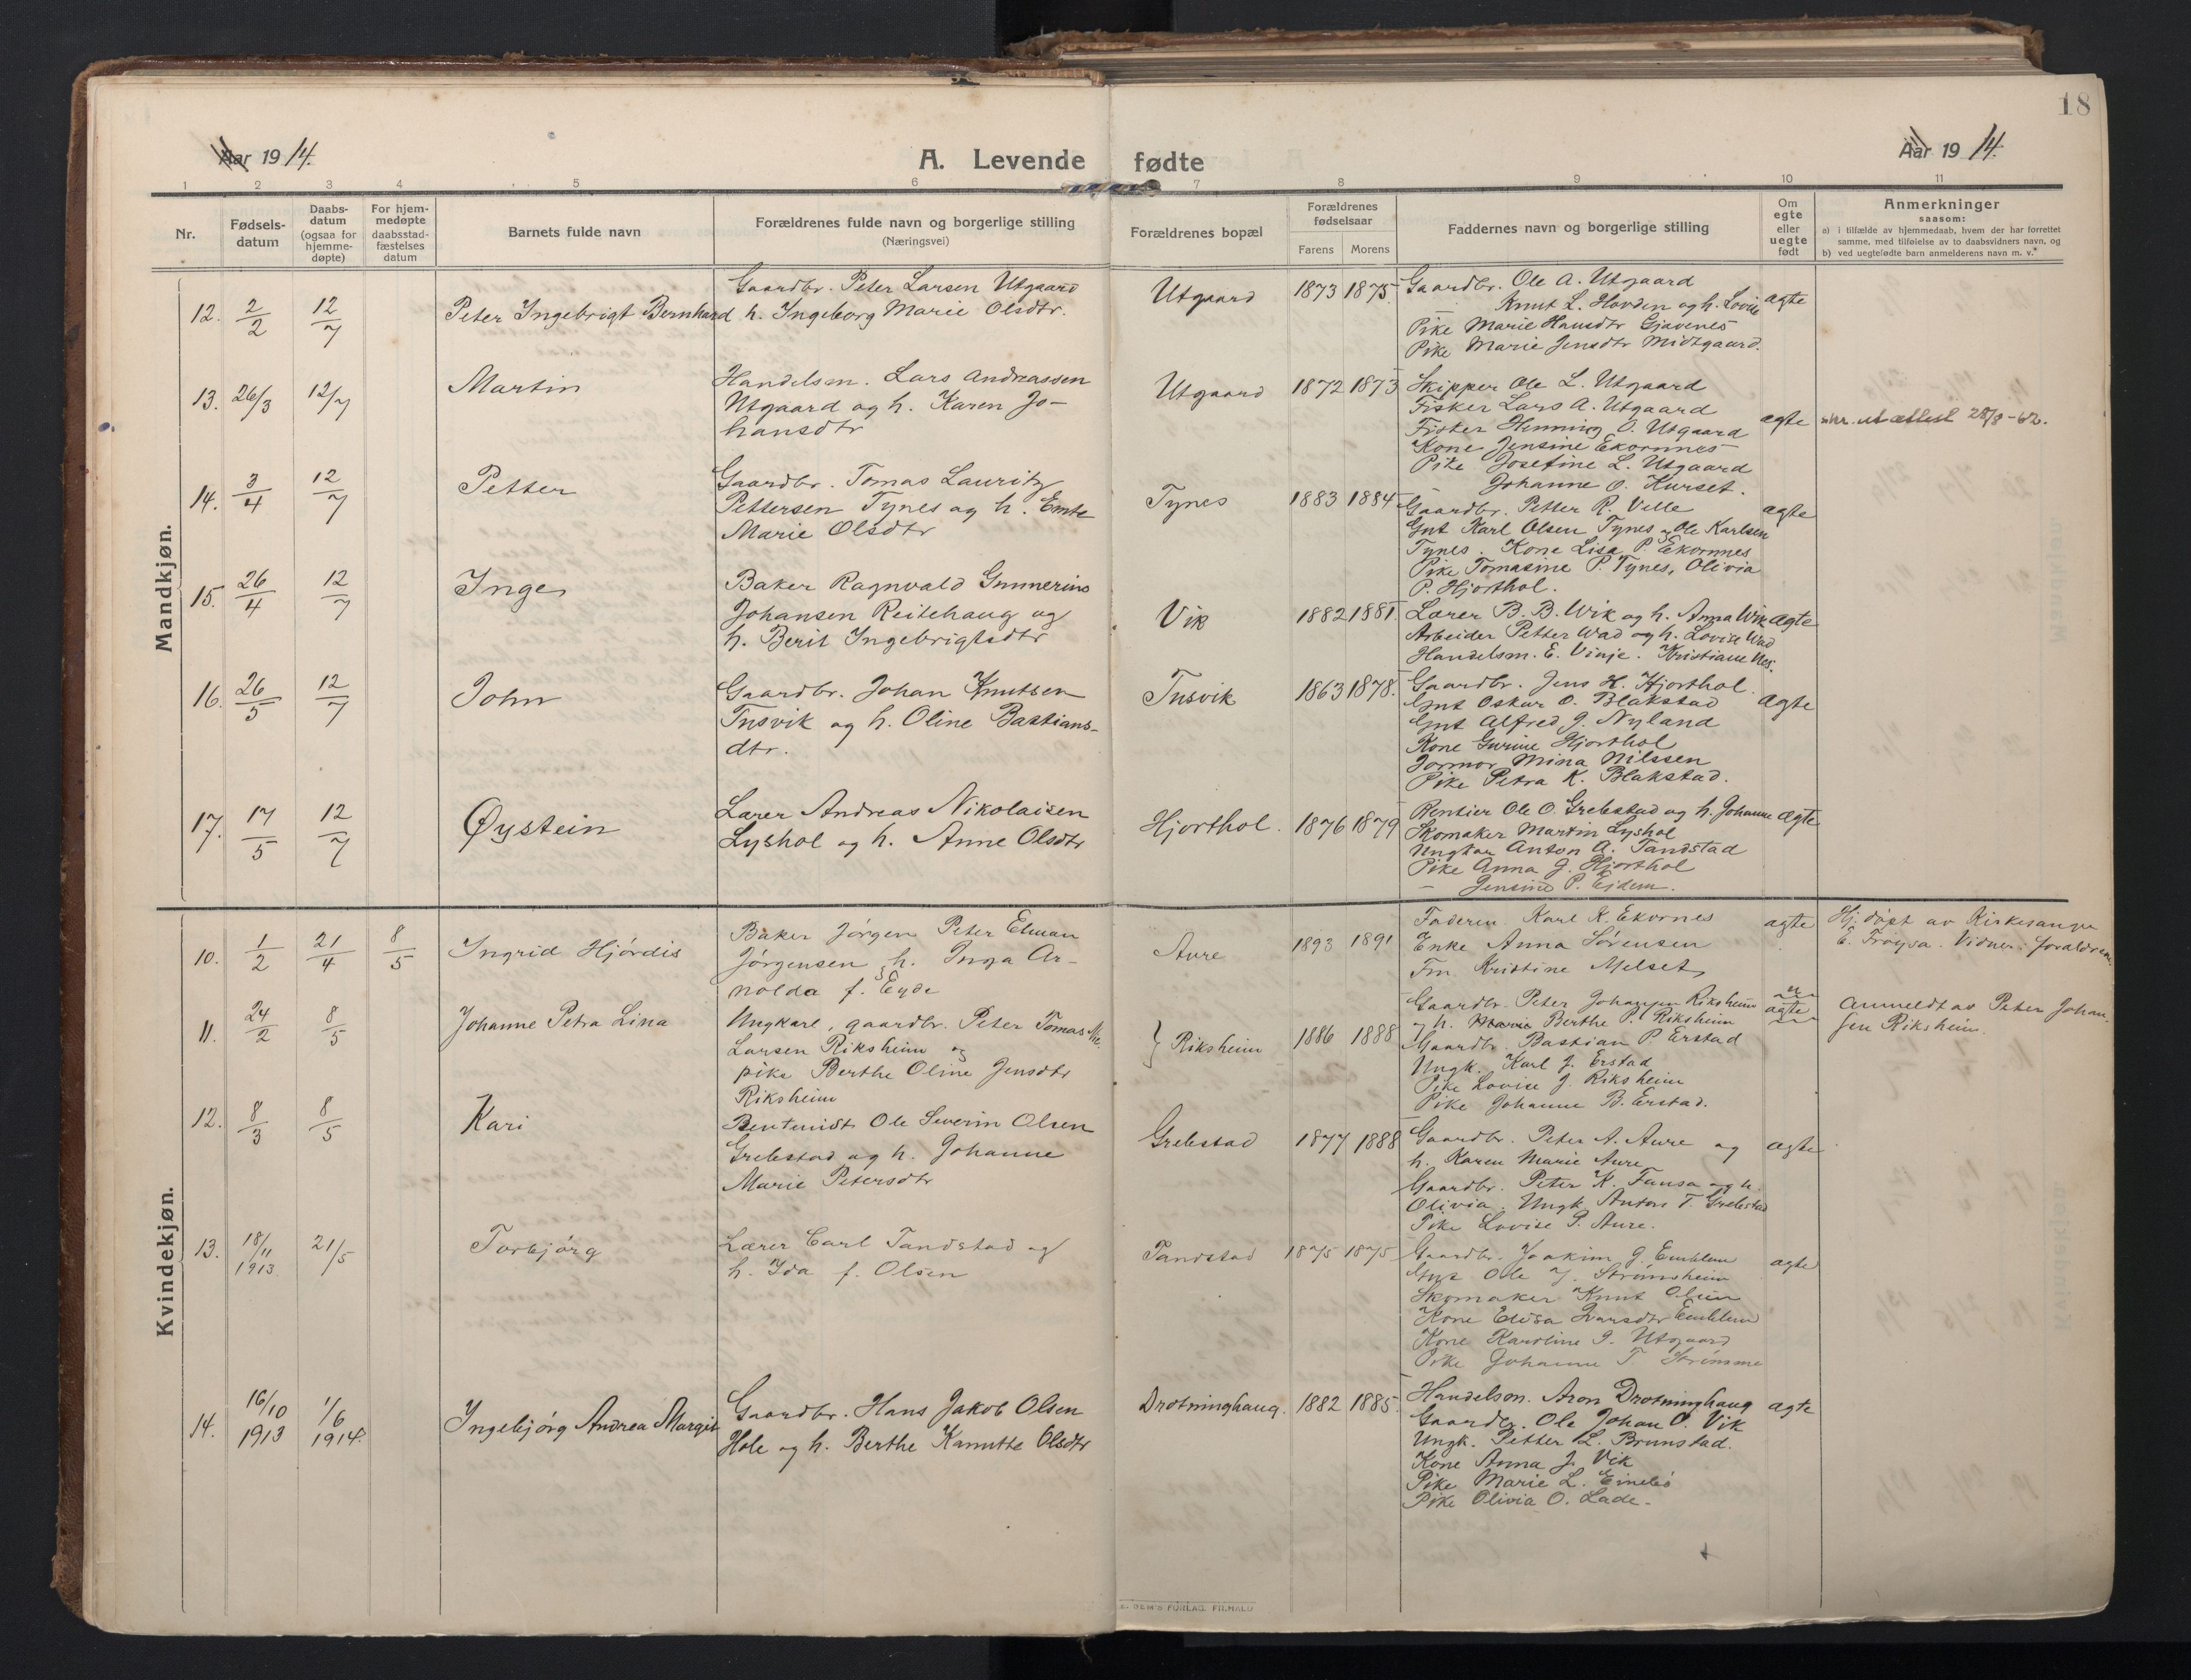 18
Aar 1914.
A. Levende fødte
Aar 1914.
1 2 3 4 5 6 7 8 9 10 11
Nr.
Fødsels-
datum
Daabs-
datum
(ogsaa for
hjemme-
døpte)
For hjem-
medøpte
daabsstad-
fæstelses
datum
Barnets fulde navn
Forældrenes fulde navn og borgerlige stilling
(Næringsvei)
Forældrenes bopæl
Forældrenes
fødselsaar
Farens Morens
Faddernes navn og borgerlige stilling
Om
egte
eller
uegte
født
Anmerkninger
saasom:
a) i tilfælde av hjemmedaab, hvem der har forrettet
samme, med tilføielse av to daabsvidners navn, og
b) ved uegtefødte barn anmelderens navn m. v.*
Mandkjøn.
12. 2/2 12/7 Peter Ingebrigt Bernhard
Gaardbr. Peter Larsen Utgaard
h. Ingeborg Marie Olsdtr.
Utgaard 1873 1875.
Gaardbr. Ole A. Utgaard
— Knut L. Hovden og h. Lovise
Pike Marie Hansdtr Gjævenes
Pike Marie Jensdtr Midtgaard.
ægte
13. 26/3 12/7 Martin
Handelsm. Lars Andreassen
Utgaard og h. Karen Jo-
hansdtr
Utgaard 1872 1873
Skipper Ole L. Utgaard
Fisker Lars A. Utgaard
Fisker Henning O. Utgaard
Kone Jensine Ekornnes
Pike Josefine L. Utgaard
— Johanne O. Kurset.
ægte
skr. ut attest 28/8-62.
14. 3/4 12/7 Petter
Gaardbr. Tomas Lauritz
Pettersen Tynes og h. Emte
Marie Olsdtr
Tynes 1883 1884
Gaardbr. Petter R. Velle
Gut Karl Olsen Tynes og Ole Karlsen
Tynes. Kone Lisa P. Ekornnes
Pike Tomasine P. Tynes, Olivia
P. Hjorthol.
ægte
15. 26/4 12/7 Inge
Baker Ragnvald Gunnerius
Johansen Reitehaug og
h. Berit Ingebrigtsdtr
Vik 1882 1881.
Lærer B. B. Wik og h. Anna Wik
Arbeider Petter Wad og h. Lovise Wad
Handelsm. E. Vinje. Kristiane Nes.
ægte
16. 26/5 12/7 John
Gaardbr. Johan Knutsen
Tusvik og h. Oline Bastians-
dtr.
Tusvik 1863 1878.
Gaardbr. Jens H. Hjorthol.
Gut Oskar O. Blakstad
Gut Alfred J. Nyland
Kone Gurine Hjorthol
Jormor Mina Nilssen
Pike Petra K. Blakstad.
ægte
17. 17/5 12/7 Øystein
Lærer Andreas Nikolaisen
Lyshol og h. Anne Olsdtr
Hjorthol. 1876 1879
Rentier Ole O. Grebstad og h. Johanne
Skomaker Martin Lyshol
Ungkar Anton A. Tandstad
Pike Anna J. Hjorthol
— Jensine P. Eidem.
ægte
Kvindekjøn.
10. 1/2 21/4 8/5 Ingrid Hjørdis
Baker Jørgen Peter Elman
Jørgensen og h. Inga Ar-
nolda f. Eyde
Aure 1893 1891
Faderen Karl K. Ekornes
Enke Anna Sørensen
Frn. Kristine Melset
ægte
Hj. døpt av Kirkesanger
E. Frøysa. Vidner: forældrene.
11. 24/2 8/5 Johanne Petra Lina
Ungkarl, gaardbr. Peter Tomas
Larsen Riksheim og
pike Berthe Oline Jensdtr
Riksheim
Riksheim 1886 1888
Gaardbr. Peter Johansen Riksheim
og h. Berthe P. Riksheim
Gaardbr. Bastian P Erstad
Ungk. Karl J. Erstad
Pike Lovise J. Riksheim
Pike Johanne B. Erstad.
u
ægte
Anmeldt av Peter Johan-
sen Riksheim.
12. 8/3 8/5 Kari
Rentenist Ole Severin Olsen
Grebstad og h. Johanne
Marie Petersdtr
Grebstad 1877 1888
Gaardbr. Peter A. Aure og
h. Karen Marie Aure
Gaardbr. Peter K. Fausa og h.
Olivia. Ungk Anton T. Grebstad
Pike Lovise P. Aure.
ægte
13. 18/11 1913 21/5 Torbjørg
Lærer Carl Tandstad og
h. Ida f. Olsen
Tandstad 1875 1875
Gaardbr. Joakim J. Emblem
Gut Ole J. Strømsheim
Skomaker Knut Olsen
Kone Elisa Ivarsdtr Emblem
Kone Karoline J. Utgaard
Pike Johanne T. Strømme
ægte
14. 16/10 1913 1/6 1914. Ingebjørg Andrea Margit
Gaardbr. Hans Jakob Olsen
Hole og h. Berthe Kanutte Olsdtr
Drotninghaug. 1882 1885.
Handelsm. Aron Drotninghaug
Gaardbr. Ole Johan O. Vik
Ungk. Petter L. Brunstad.
Kone Anna J. Vik
Pike Marie L. Einebø
Pike Olivia O. Lade.
ægte